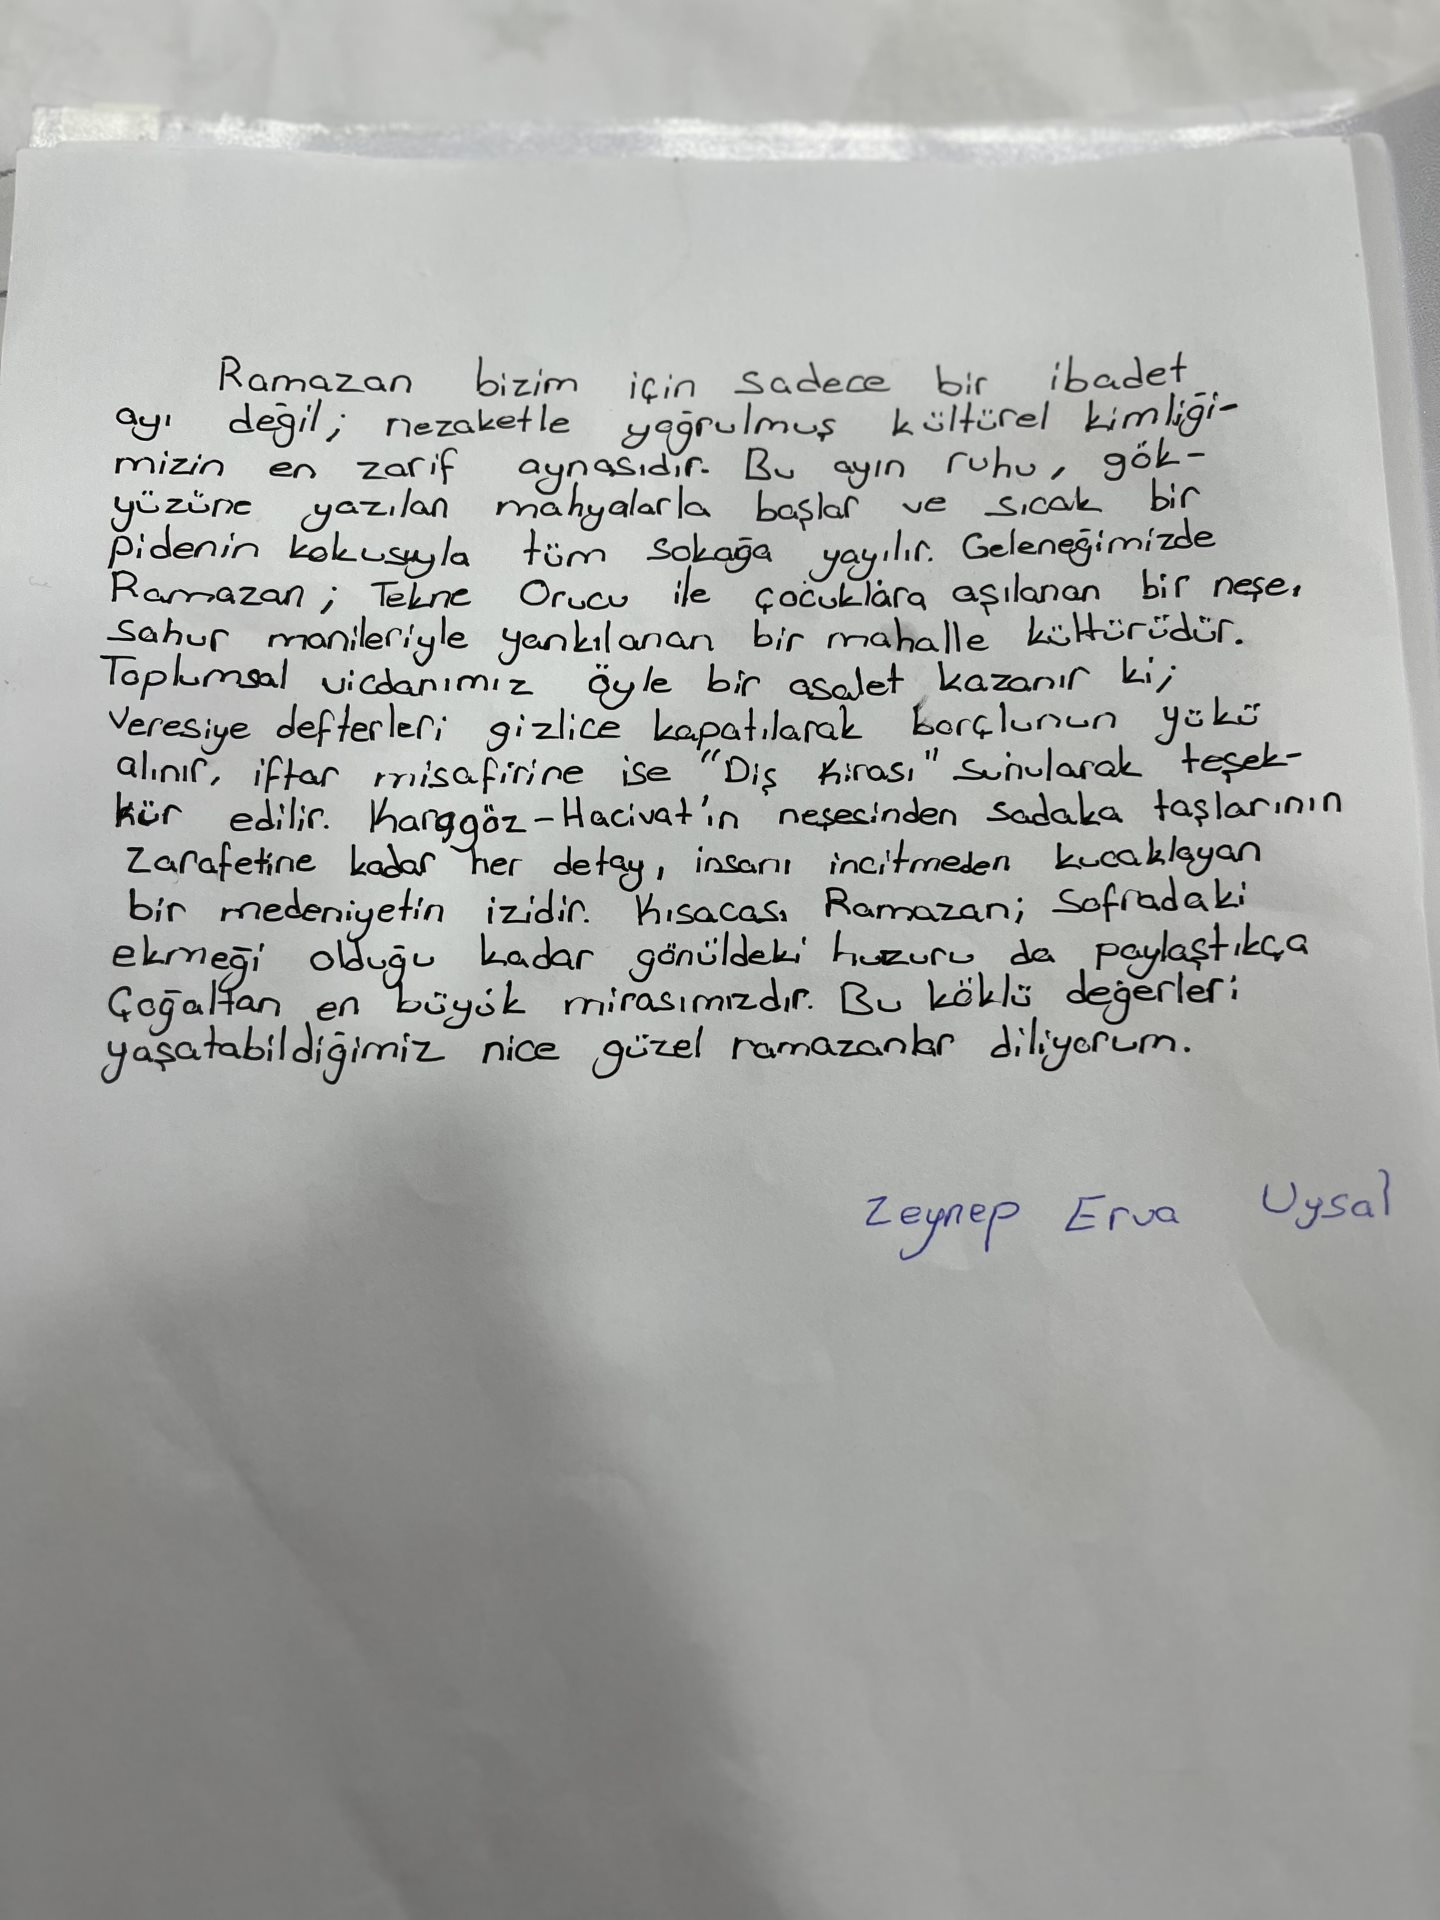 Ramazan bizim için sadece bir ibadet
ayı değil; nezaketle yoğrulmuş kültürel kimliği-
mizin en zarif aynasıdır. Bu ayın ruhu, gök-
yüzüne yazılan mahyalarla başlar ve sıcak bir
pidenin kokusuyla tüm sokağa yayılır. Geleneğimizde
Ramazan; Tekne Orucu ile çocuklara aşılanan bir neşe,
sahur manileriyle yankılanan bir mahalle kültürüdür.
Toplumsal vicdanımız öyle bir asalet kazanır ki;
veresiye defterleri gizlice kapatılarak borçlunun yükü
alınır, iftar misafirine ise "Diş Kirası" sunularak teşek-
kür edilir. Karagöz-Hacivat'ın neşesinden sadaka taşlarının
zarafetine kadar her detay, insanı incitmeden kucaklayan
bir medeniyetin izidir. Kısacası Ramazan; sofradaki
ekmeği olduğu kadar gönüldeki huzuru da paylaştıkça
çoğaltan en büyük mirasımızdır. Bu köklü değerleri
yaşatabildiğimiz nice güzel ramazanlar diliyorum.
Zeynep Erva Uysal